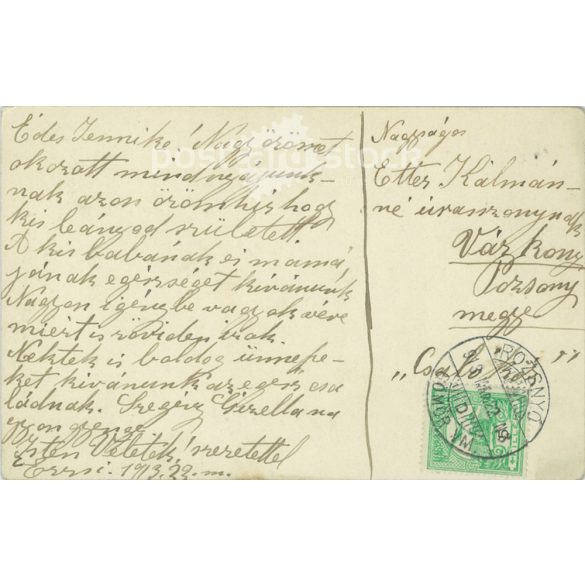 Édes Jennike! Nagy örömet
okozott mindnyájunk-
nak azon örömhír hogy
kis leányod született
A kis babának és mamá
jának egészséget kívánunk
Nagyon igénybe vagyok véve
miért is röviden írok.
Nektek is boldog ünnepe-
ket kívánunk az egész csa
ládnak. Szegény Gizella na
gyon gyenge
Isten Veletek! szeretettel
Erzsi. 1913.22.m.
Nagyságos
Etter Kálmán-
né úrasszonynak
Várkony
Pozsony
megye
"Csalló köz"
ROZSNYÓ
postcard stock